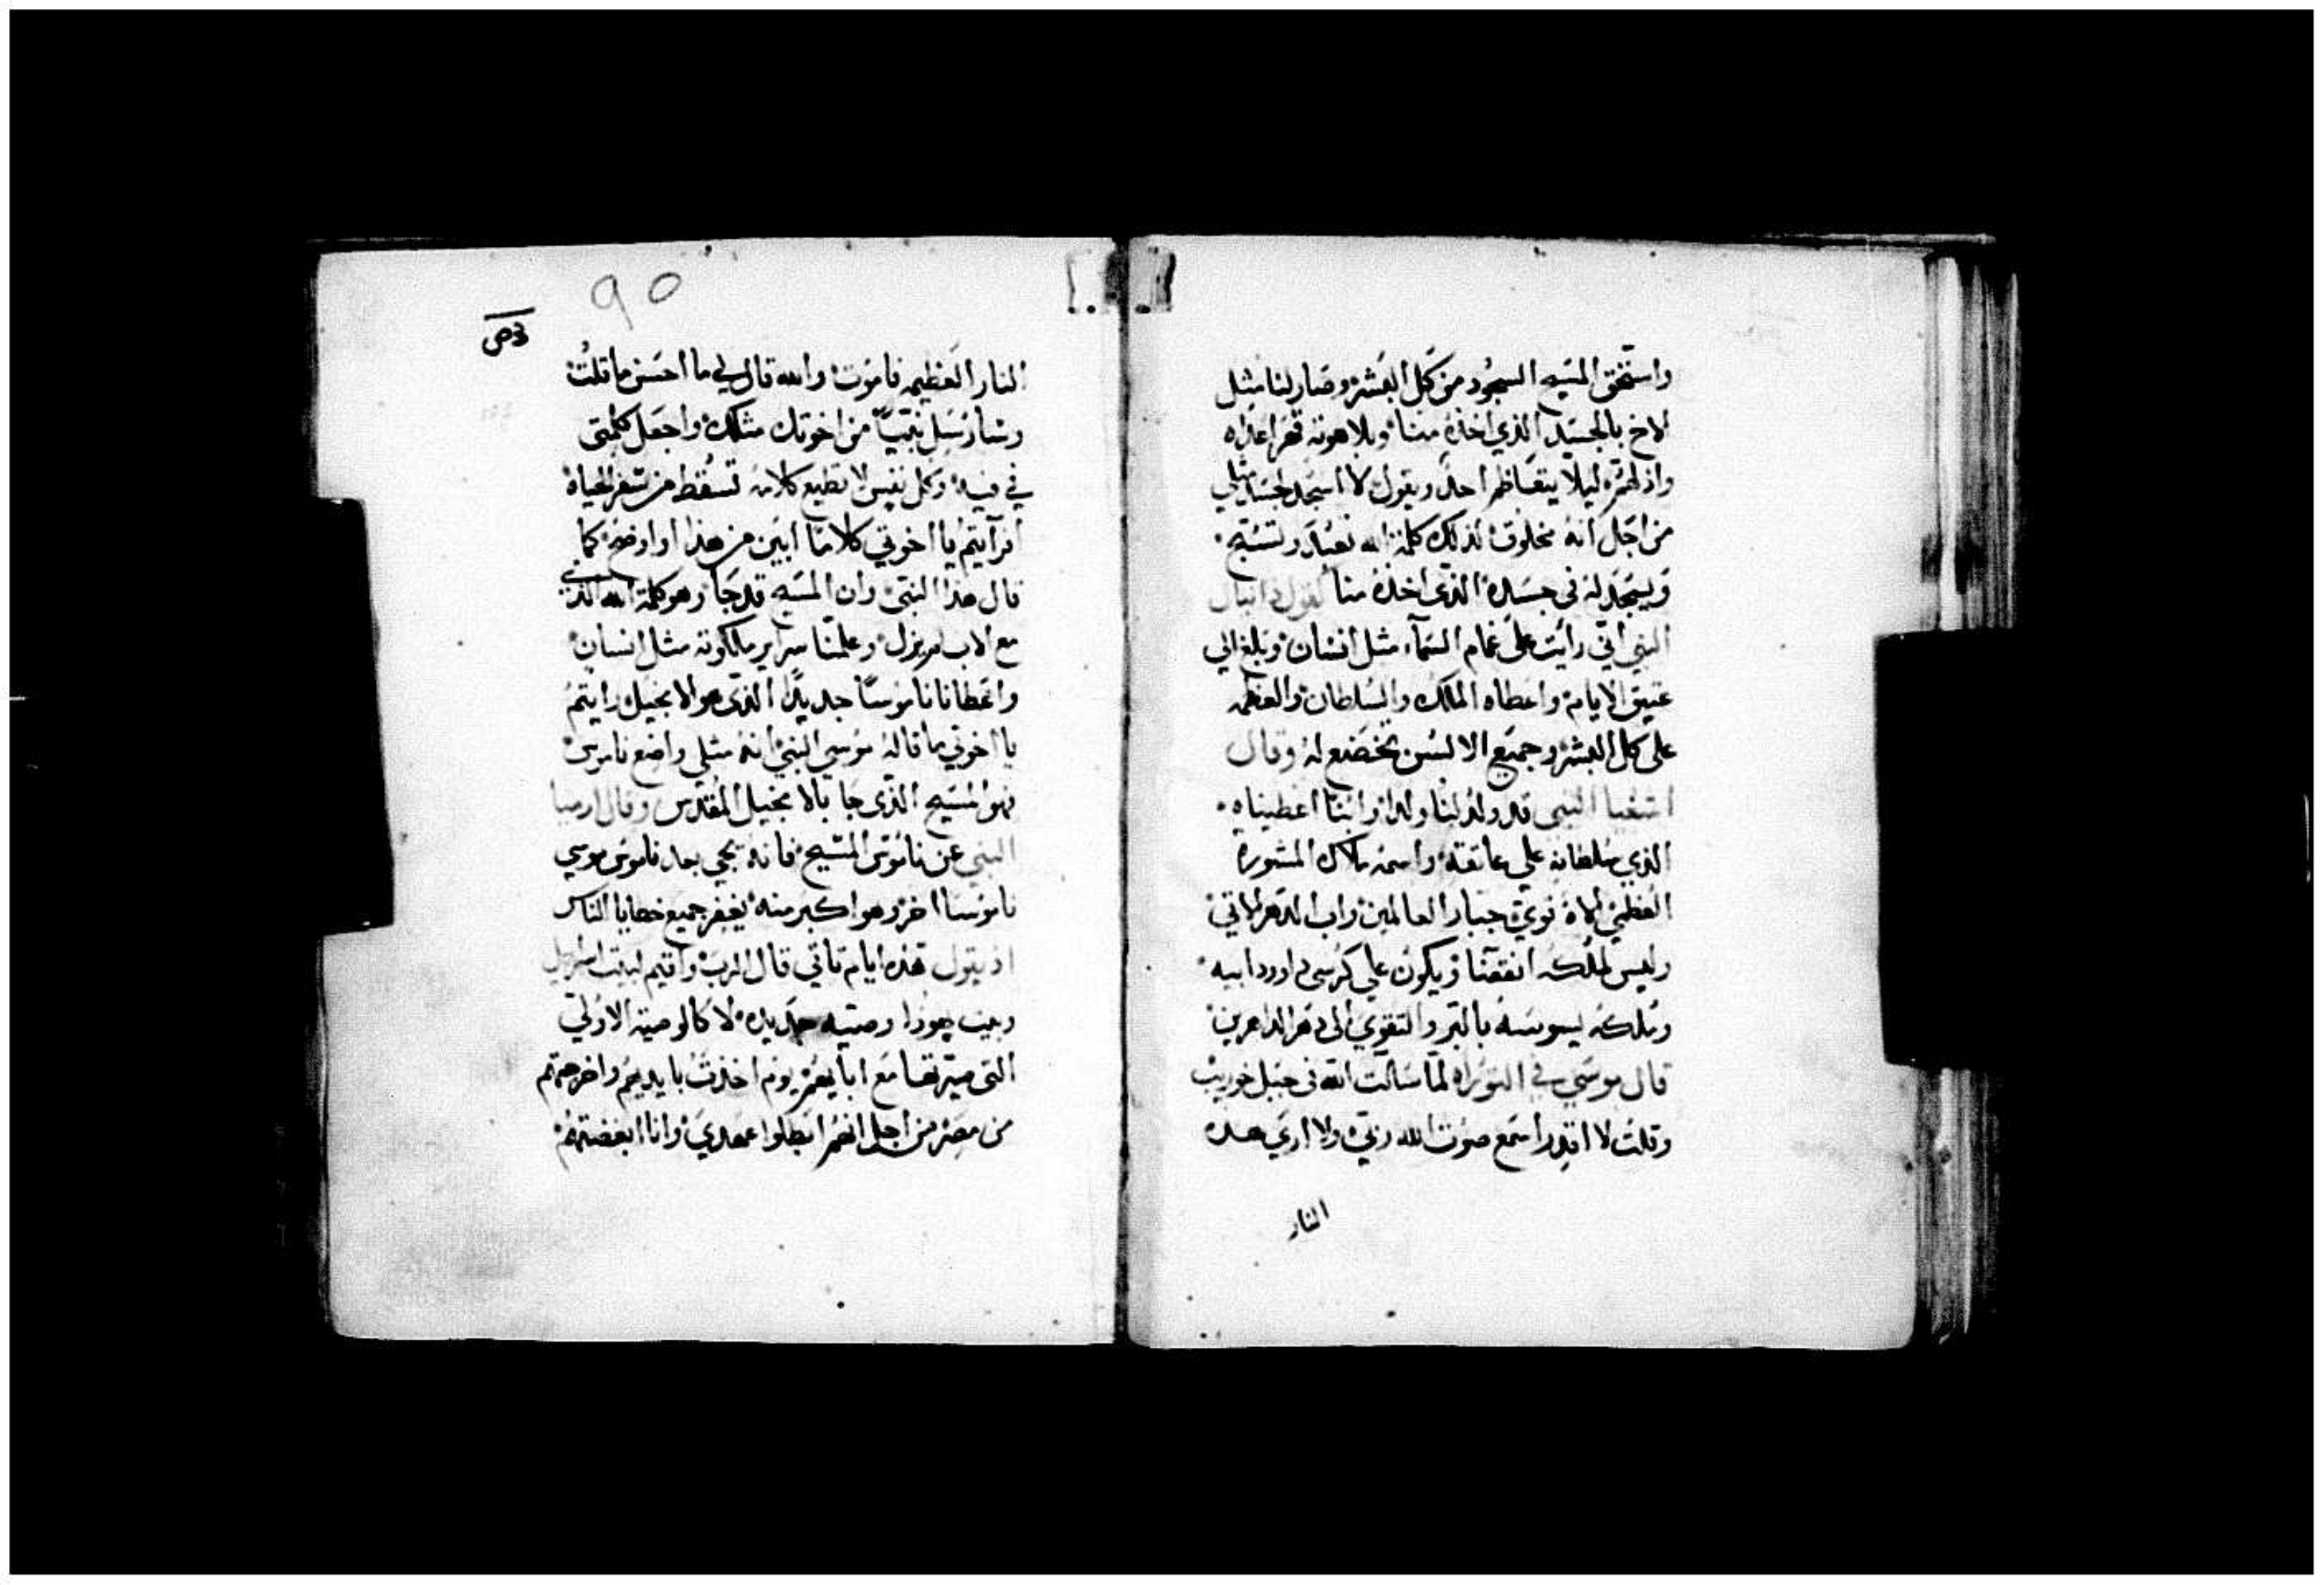 واستحق المسيح السجود من كل البشر وصار لنا مثل
الاخ بالجسد الذي اخذه منا وبلاهوته قهر اعداه
واذلهم ليلا يتعاظم احد ويقول لا اسجد لجسد مثلي
من اجل انه مخلوق لذلك كلمة الله تعبد وتسبح
ويسجد له في جسده الذي اخذه منا لقول دانيال
النبي اني رايت على غمام السماء مثل انسان وبلغ الي
عتيق الايام واعطاه الملك والسلطان والعظمه
على كل البشر وجميع الالسن تخضع له وقال
اشعيا النبي قد ولد لنا ولد وابنا اعطيناه
الذي سلطانه علي عاتقه واسمه ملاك المشورة
العظمي الاه قوي جبار العالمين واب الدهر الاتي
وليس لملكه انقضا ويكون علي كرسي داوود ابيه
وملكه يسوسه بالبر والتقوي الى دهر الداهرين
قال موسي في التوراه لما سالت الله في جبل خوريب
وقلت لا اقدر اسمع صوت الله ربي ولا اري هده
النار
90
النار العظيمه فاموت والله قال لي ما احسن ما قلت
وسارسل نبيا من اخوتك مثلك واجعل كلمتي
في فيه وكل نفس لا تطيع كلامه تسقط من سفر الحياه
افرآيتم يا اخوتي كلاما ابين من هذا او اوضح كما
قال هذا النبي وان المسيح قد جا وهو كلمة الله الذي
مع الاب لم يزل وعلمنا سراير ملكوته مثل انسان
واعطانا ناموسا جديدا الذي هو الانجيل رايتم
يا اخوتي ما قاله موسي النبي انه مثلي واضع ناموس
فهو المسيح الذي جا بالانجيل المقدس وقال ارميا
النبي عن ناموس المسيح فانه يجي بعد ناموس موسي
ناموسا اخر وهو اكبر منه يغفر جميع خطايا الناس
اذ يقول هذه ايام تاتي قال الرب واقيم لبيت اسرايل
وبيت يهودا وصيه جديده لا كالوصيه الاولي
التي صيرتها مع ابايهم يوم اخذت بايديهم واخرجتهم
من مصر من اجل انهم ابطلوا عهدي وانا ابغضتهم